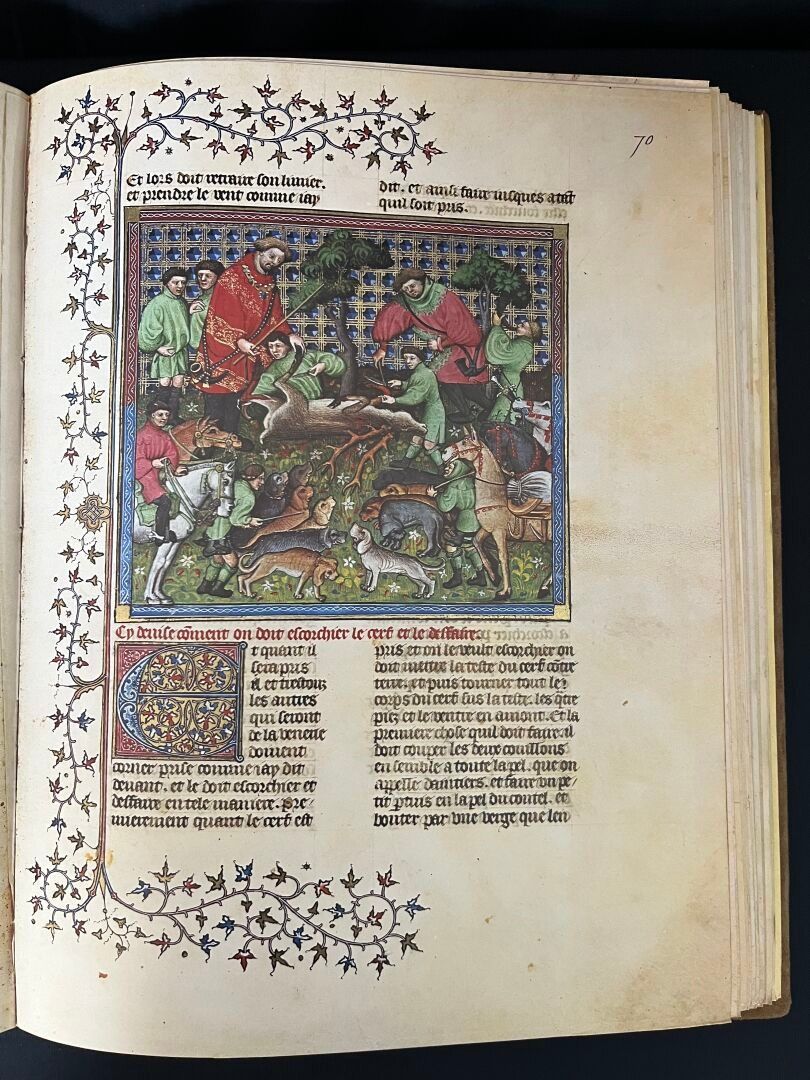 70
Et lors doit retraire son limier.
et prendre le vent comme iay
dit. et ainsi faire iusques atãt
quil soit pris.
Cy deuise cõment on doit escorchier le cerf et le deffaire.
Et quant il
sera pris
il et trestouz
les autres
qui seront
de la venerie
doiuent
corner prise comme iay dit
deuant. et le doit escorchier et
deffaire en tele maniere. Pre/
mierement quant le cerf est
pris et on le veult escorchier on
doit mettre la teste du cerf cõtre
terre. et puis tourner tout le
corps du cerf sus la teste. les qtre
piez et le ventre en amont. Et la
premiere chose quil doit faire. il
doit couper les deux couillons
en semble a toute la pel. que on
appelle daintiers. et faire vn pe/
tit ptuis en la pel du coutel. et
bouter par vne verge que len